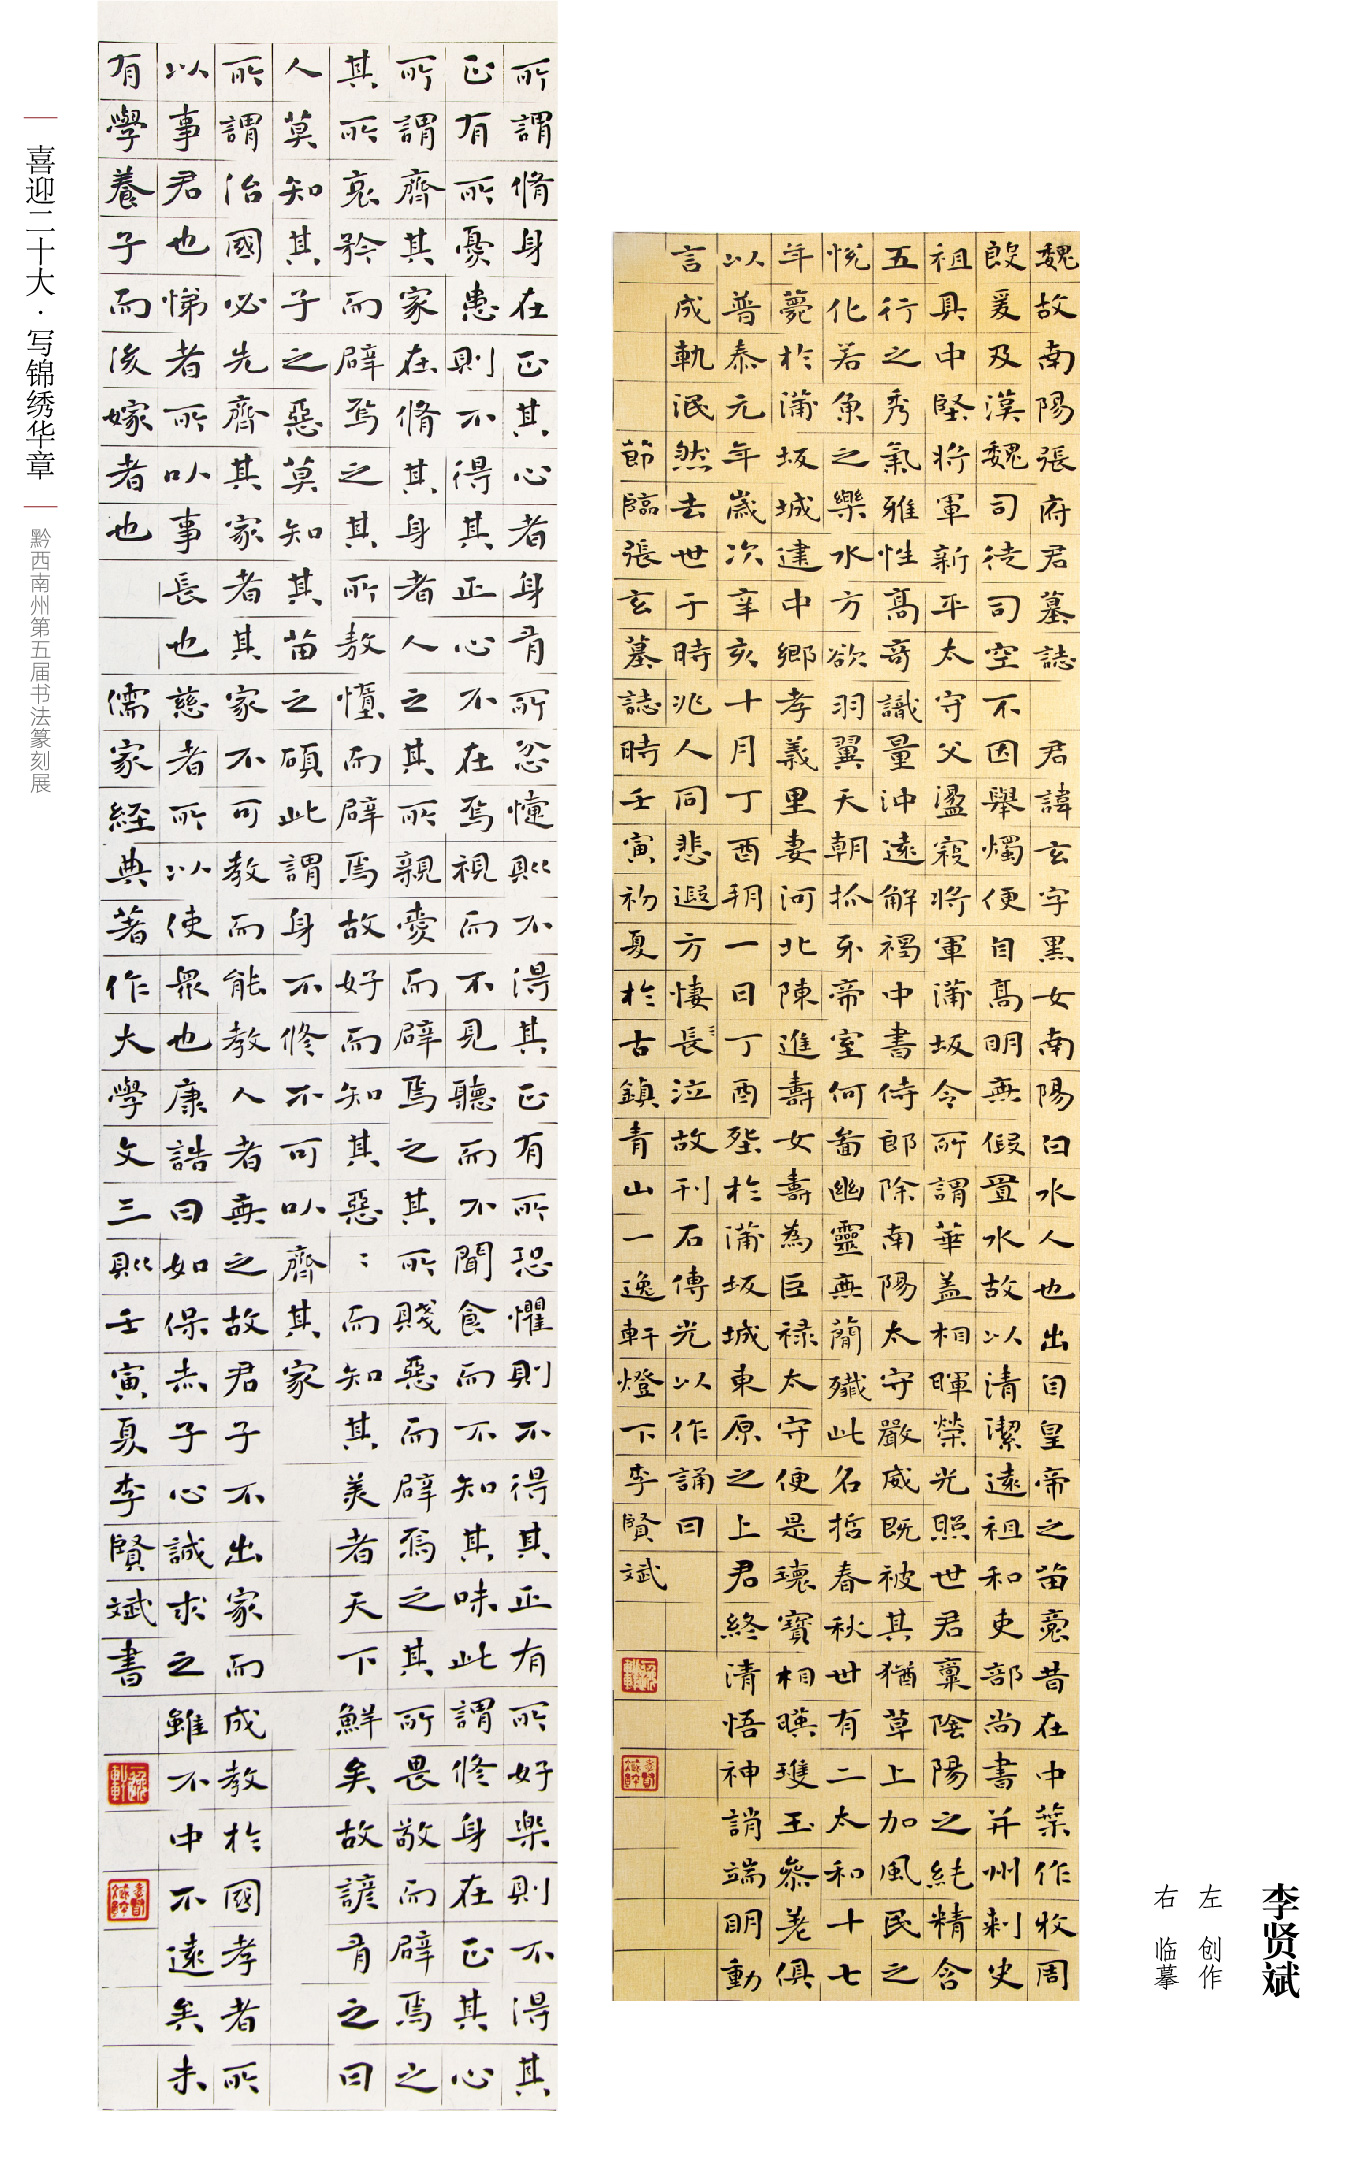 李贤斌
左 创作
右 临摹
魏故南陽張府君墓誌 君諱玄字黑女南陽白水人也出自皇帝之苗裔昔在中葉作牧周
殷爰及漢魏司徒司空不因舉燭便自高明無假置水故以清潔遠祖和吏部尚書并州刺史
祖具中堅將軍新平太守父盪寇將軍蒲坂令所謂華蓋相暉榮光照世君稟陰陽之純精含
五行之秀氣雅性高奇識量沖遠解褐中書侍郎除南陽太守嚴威既被其猶草上加風民之
悅化若魚之樂水方欲羽翼天朝抓牙帝室何啚幽靈無蕳殲此名哲春秋世有二太和十七
年薨於蒲坂城建中鄉孝義里妻河北陳進壽女壽為巨祿太守便是瓌寶相暎瓊玉參差俱
以普泰元年歲次辛亥十月丁酉朔一日丁酉塟於蒲坂城東原之上君終清悟神誚端明動
言成軌泯然去世于時兆人同悲遐方悽長泣故刊石傳光以作誦曰
節臨張玄墓誌時壬寅初夏於古鎮青山一逸軒燈下李賢斌
所謂脩身在正其心者身有所忿懥則不得其正有所恐懼則不得其正有所好樂則不得其
正有所憂患則不得其正心不在焉視而不見聽而不聞食而不知其味此謂修身在正其心
所謂齊其家在脩其身者人之其所親愛而辟焉之其所賤惡而辟焉之其所畏敬而辟焉之
其所哀矜而辟焉之其所敖惰而辟焉故好而知其惡：而知其美者天下鮮矣故諺有之曰
人莫知其子之惡莫知其苗之碩此謂身不修不可以齊其家
所謂治國必先齊其家者其家不可教而能教人者無之故君子不出家而成教於國孝者所
以事君也悌者所以事長也慈者所以使眾也康誥曰如保赤子心誠求之雖不中不遠矣未
有學養子而後嫁者也 儒家經典著作大學文三則壬寅夏李賢斌書
喜迎二十大·写锦绣华章
黔西南州第五届书法篆刻展